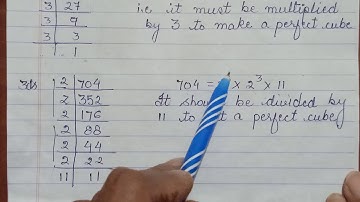 3 | 27
3 | 9
3 | 3
1
i.e it must be multiplied
by 3 to make a perfect cube
2 | 704
2 | 352
2 | 176
2 | 88
2 | 44
2 | 22
11 | 11
704 = × 2³ × 11
It should be divided by
11 to a perfect cube